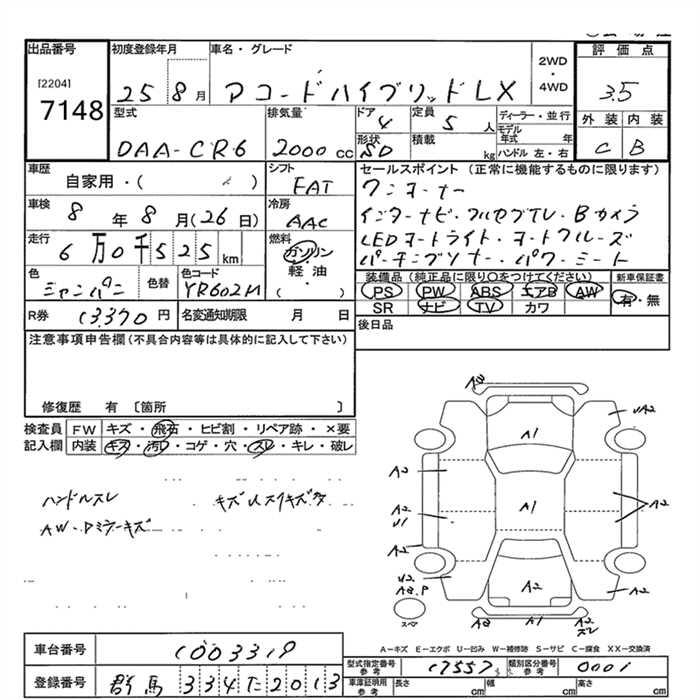 出品番号 初度登録年月 車名・グレード 2WD・4WD 評価点
[2204]
7148 25 8月 アコードハイブリッドLX 3.5
型式 排気量 ドア 定員 ディーラー・並行 外装 内装
DAA-CR6 2000cc 4 5人 モデル年式 年 C B
形状 積載 kg ハンドル左・右
5D
車歴 シフト セールスポイント(正常に機能するものに限ります)
自家用・( ) FAT ワンオーナー
車検 冷房 インターナビ・フルセグTV・Bカメラ
8年8月(26日) AAC LEDオートライト・オートクルーズ
走行 燃料 パーキングソナー・パワーシート
6万0千525km ガソリン・軽油・( )
色 色替 色コード 装備品(純正品に限り○をつけてください) 新車保証書
シャンパン YR602M PS PW ABS エアB AW 有・無
SR ナビ TV カワ
R券 13,370円 名変通知期限 月 日 後日品
注意事項申告欄(不具合内容等は具体的に記入して下さい)
修復歴 有〔箇所 〕
検査員記入欄 FW キズ・飛石・ヒビ割・リペア跡・×要
内装 キズ・汚れ・コゲ・穴・スレ・キレ・破レ
ハンドルスレ
AW・Dミラーキズ
A3
A1
UA2
A2
A1
A2
U1
A2
A2
U2
A2
A2
スペ
A2
スレ
A-キズ E-エクボ U-凹み W-補修跡 S-サビ C-腐食 XX-交換済
車台番号 1003319
型式指定番号 参考 17557 類別区分番号 参考 0001
登録番号 群馬 334た2013
車庫証明用 参考 長さ cm 幅 cm 高さ cm